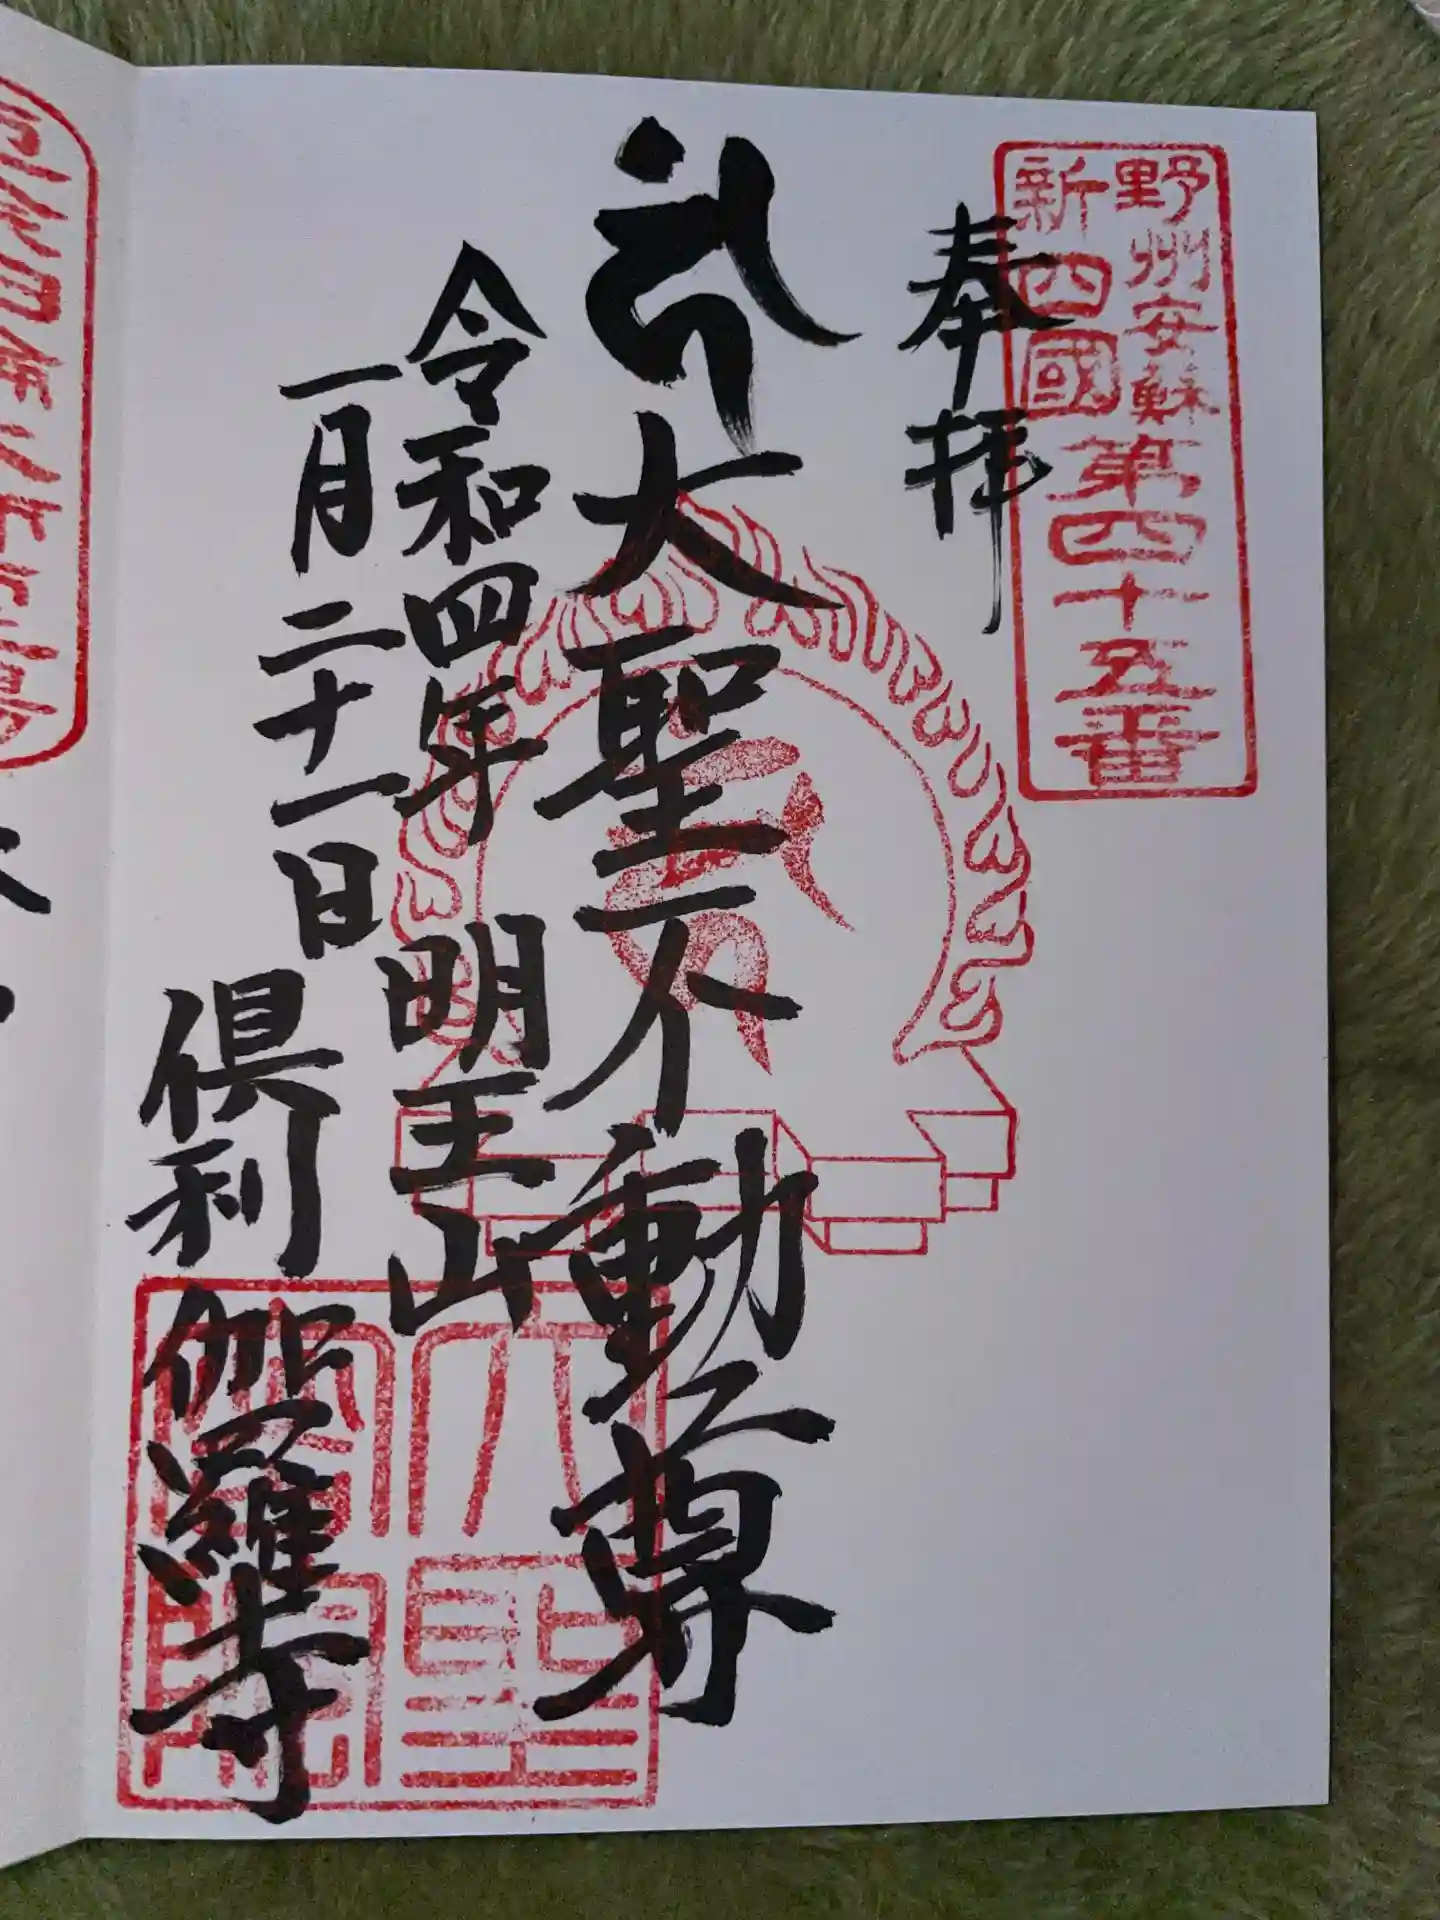 野州安蘇
新四國
第四十五番
奉拝
大聖不動尊
令和四年
一月二十一日
明王山
倶利伽羅寺